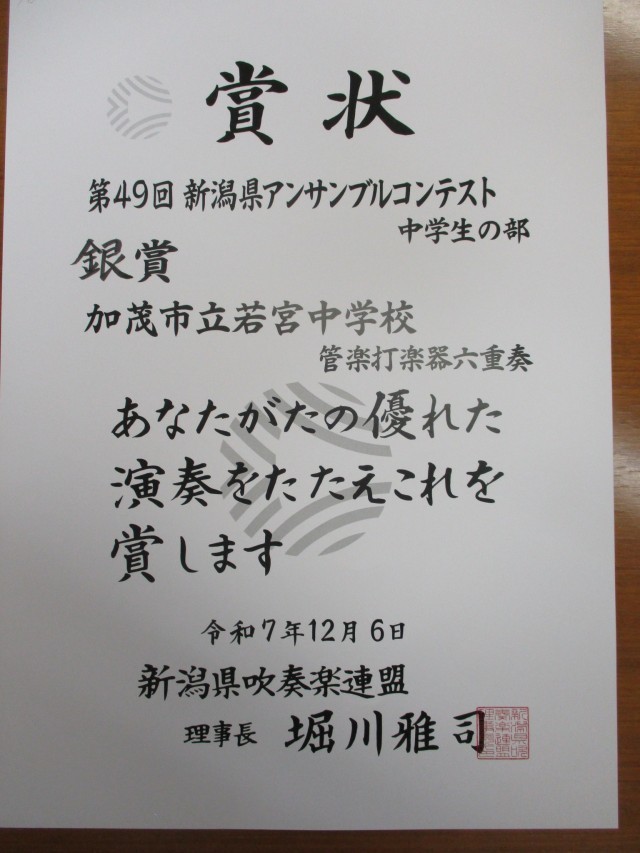 賞状
第49回 新潟県アンサンブルコンテスト
中学生の部
銀賞
加茂市立若宮中学校
管楽打楽器六重奏
あなたがたの優れた
演奏をたたえこれを
賞します
令和7年12月6日
新潟県吹奏楽連盟
理事長 堀川雅司